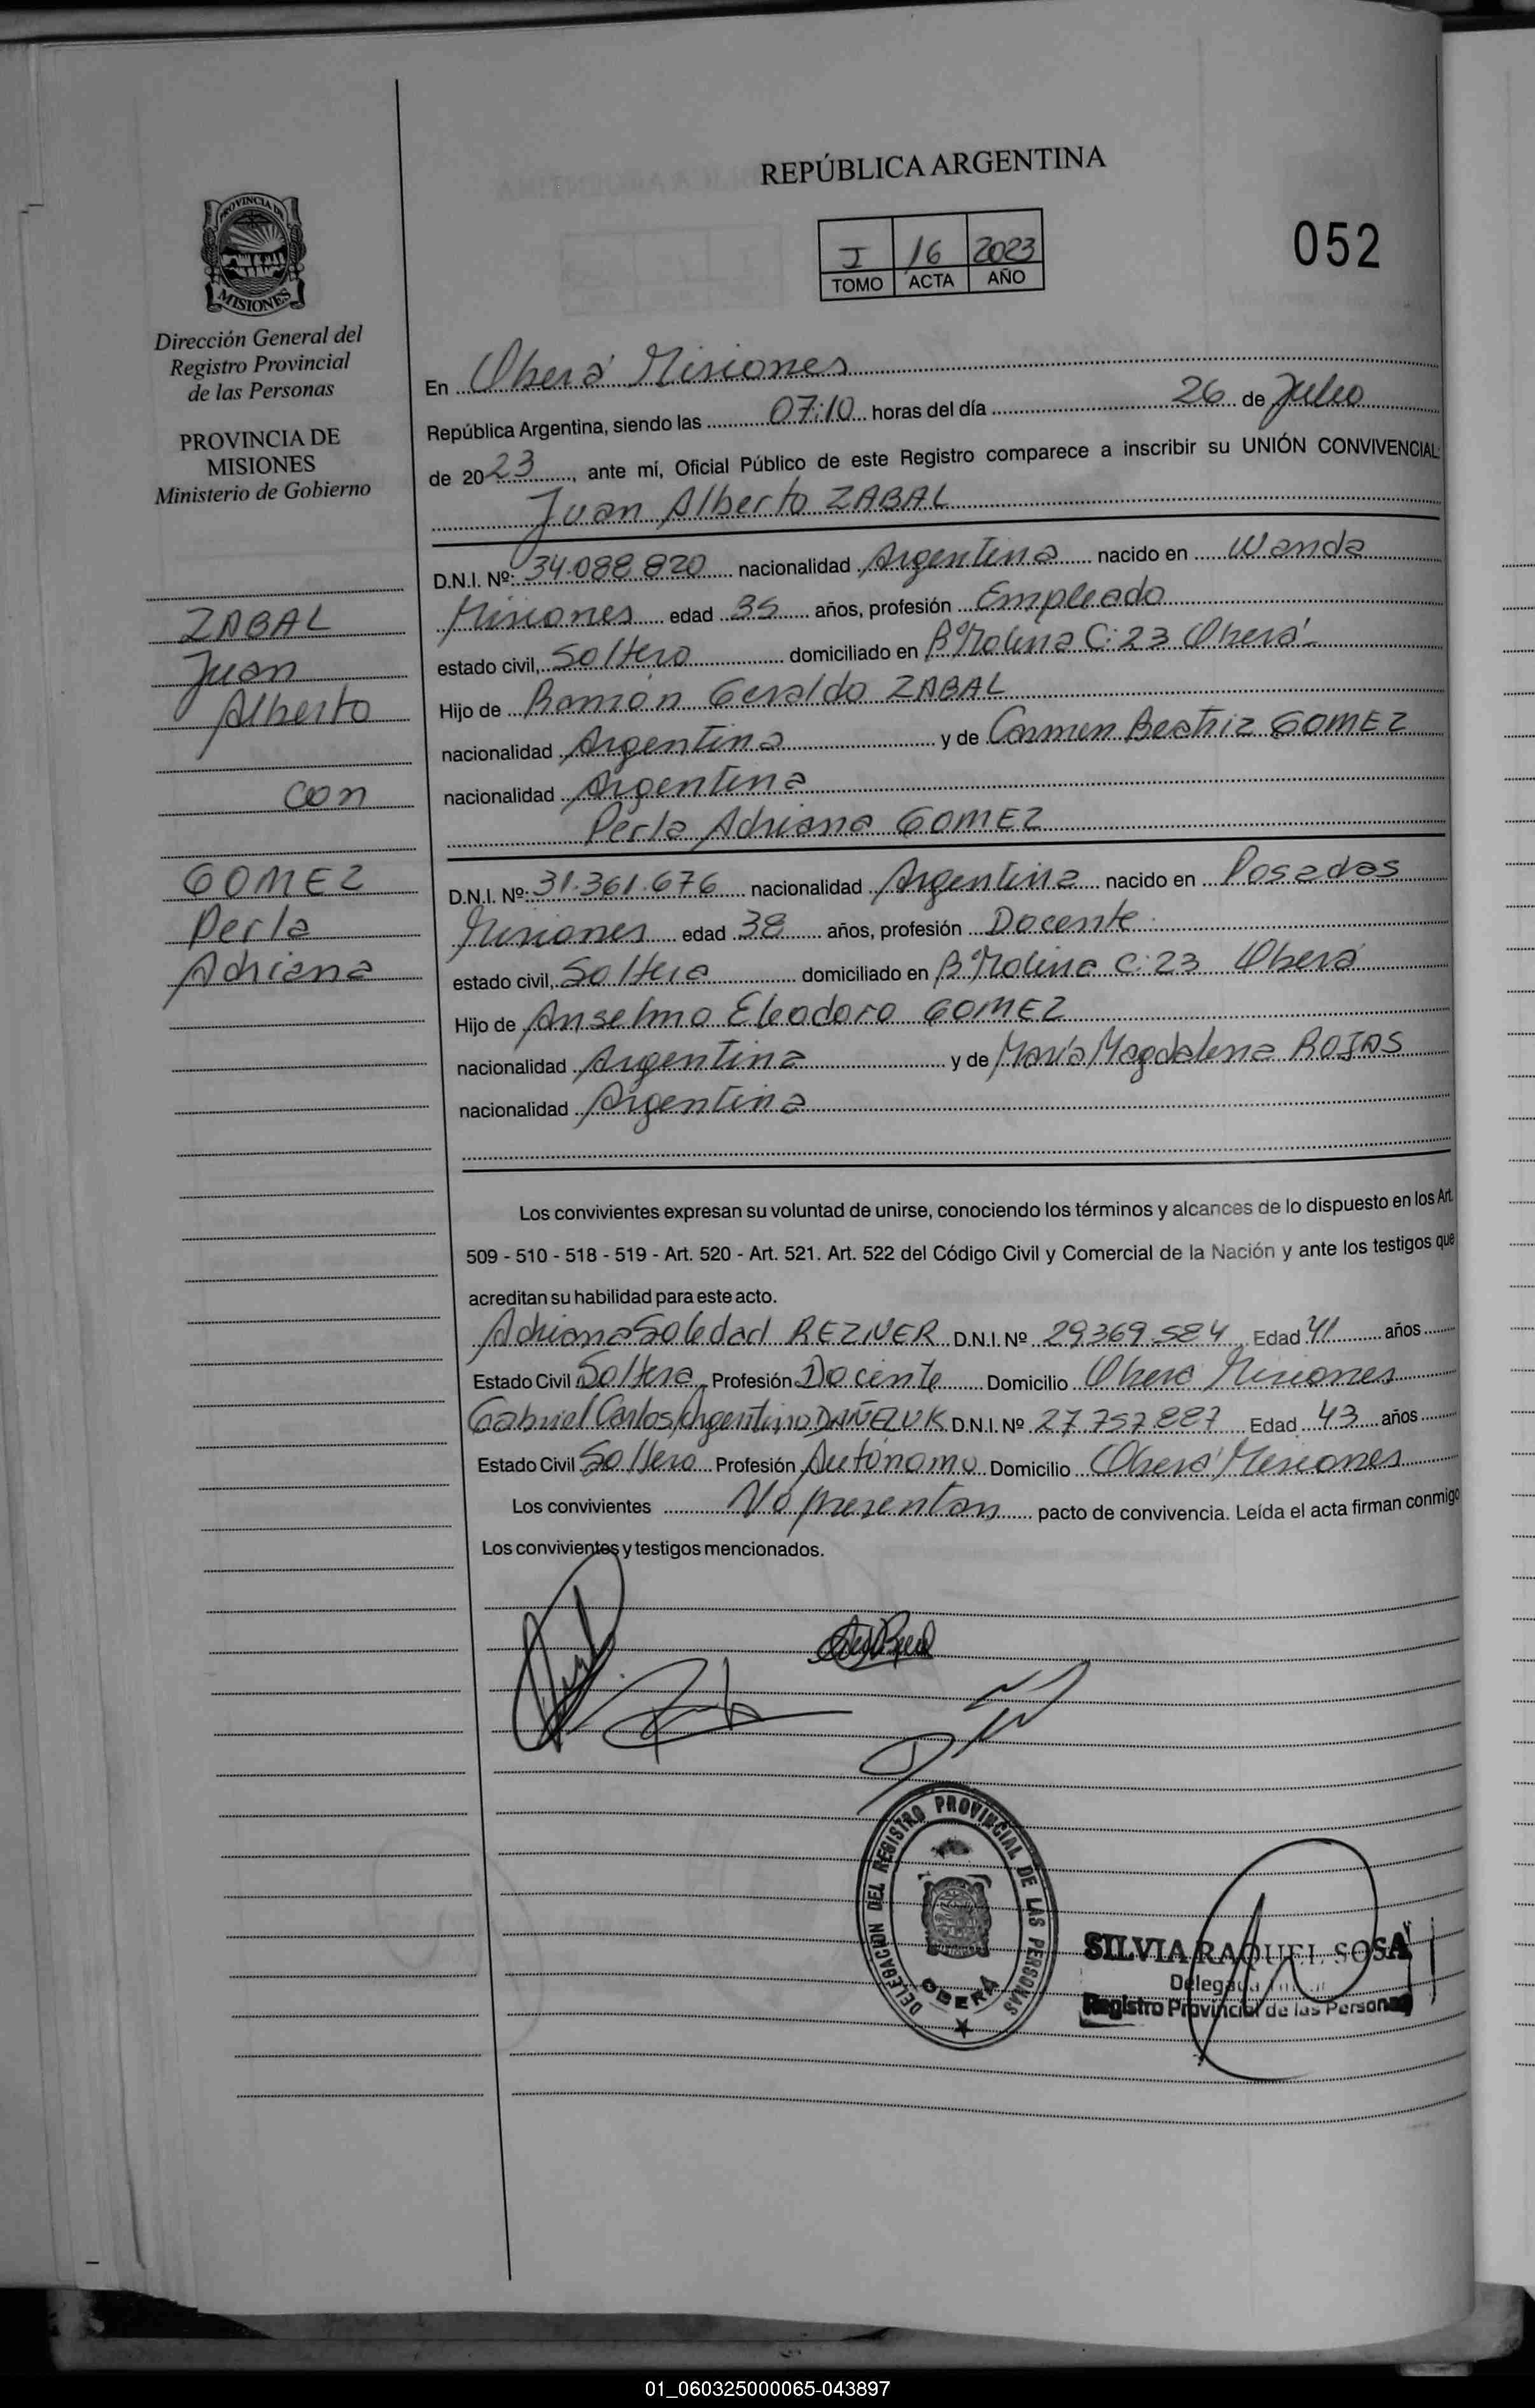 REPÚBLICA ARGENTINA
052
I 16 2023
TOMO ACTA AÑO
PROVINCIA DE
MISIONES
Dirección General del
Registro Provincial
de las Personas
PROVINCIA DE
MISIONES
Ministerio de Gobierno
ZABAL
Juan
Alberto
con
GOMEZ
Perla
Adriana
En Oberá Misiones
República Argentina, siendo las 07:10 horas del día 26 de Julio
de 2023, ante mí, Oficial Público de este Registro comparece a inscribir su UNIÓN CONVIVENCIAL:
Juan Alberto ZABAL
D.N.I. Nº: 34.088.820 nacionalidad Argentina nacido en Wanda
Misiones edad 35 años, profesión Empleado
estado civil, Soltero domiciliado en Bº Molina C: 23 Oberá
Hijo de Ramón Geraldo ZABAL
nacionalidad Argentina y de Carmen Beatriz GOMEZ
nacionalidad Argentina
Perla Adriana GOMEZ
D.N.I. Nº: 31.361.676 nacionalidad Argentina nacido en Posadas
Misiones edad 38 años, profesión Docente
estado civil, Soltera domiciliado en Bº Molina C: 23 Oberá
Hijo de Anselmo Eleodoro GOMEZ
nacionalidad Argentina y de María Magdalena ROJAS
nacionalidad Argentina
Los convivientes expresan su voluntad de unirse, conociendo los términos y alcances de lo dispuesto en los Art.
509 - 510 - 518 - 519 - Art. 520 - Art. 521. Art. 522 del Código Civil y Comercial de la Nación y ante los testigos que
acreditan su habilidad para este acto.
Adriana Soledad REZNER D.N.I. Nº 29.369.584 Edad 41 años
Estado Civil Soltera Profesión Docente Domicilio Oberá Misiones
Gabriel Carlos Argentino DAÑELUK D.N.I. Nº 27.757.887 Edad 43 años
Estado Civil Soltero Profesión Autónomo Domicilio Oberá Misiones
Los convivientes No presentan pacto de convivencia. Leída el acta firman conmigo
Los convivientes y testigos mencionados.
DELEGACION DEL REGISTRO PROVINCIAL DE LAS PERSONAS
OBERÁ
SILVIA RAQUEL SOSA
Delegada
Registro Provincial de las Personas
01_060325000065-043897